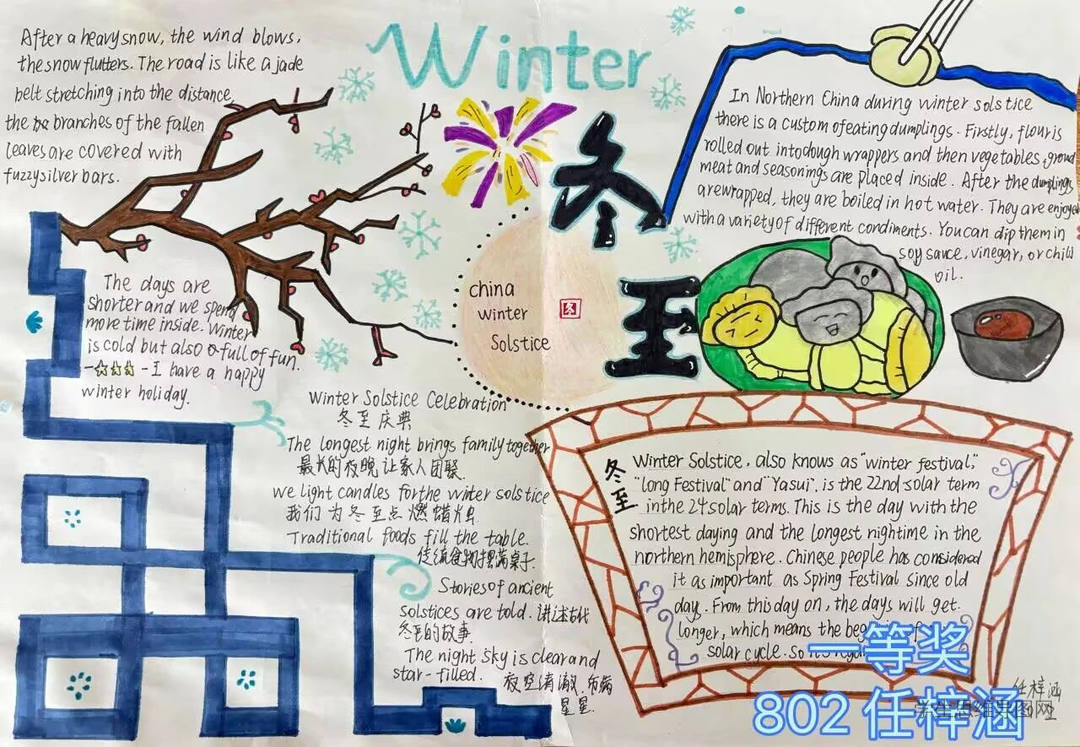 Winter
After a heavy snow, the wind blows,
the snow flutters. The road is like a jade
belt stretching into the distance,
the branches of the fallen
leaves are covered with
fuzzy silver bars.
The days are
shorter and we spend
more time inside. Winter
is cold but also full of fun.
I have a happy
winter holiday.
冬至
china
winter
Solstice
冬
In Northern China during winter solstice
there is a custom of eating dumplings. Firstly, flour is
rolled out into dough wrappers and then vegetables, ground
meat and seasonings are placed inside. After the dumplings
are wrapped, they are boiled in hot water. They are enjoyed
with a variety of different condiments. You can dip them in
soy sauce, vinegar, or chili
oil.
Winter Solstice Celebration
冬至庆典
The longest night brings family together
最长的夜晚让家人团聚
we light candles for the winter solstice
我们为冬至点燃蜡烛
Traditional foods fill the table.
传统食物摆满桌子
Stories of ancient
solstices are told. 讲述古代
冬至的故事
The night sky is clear and
star-filled. 夜空清澈,布满
星星.
冬至
Winter Solstice, also knows as "winter festival,"
"long Festival" and "Yasui", is the 22nd solar term
in the 24 solar terms. This is the day with the
shortest daying and the longest nightime in the
northern hemisphere. Chinese people has considered
it as important as Spring Festival since old
day. From this day on, the days will get
longer, which means the
solar cycle. So
一等奖
802 任梓涵
任梓涵